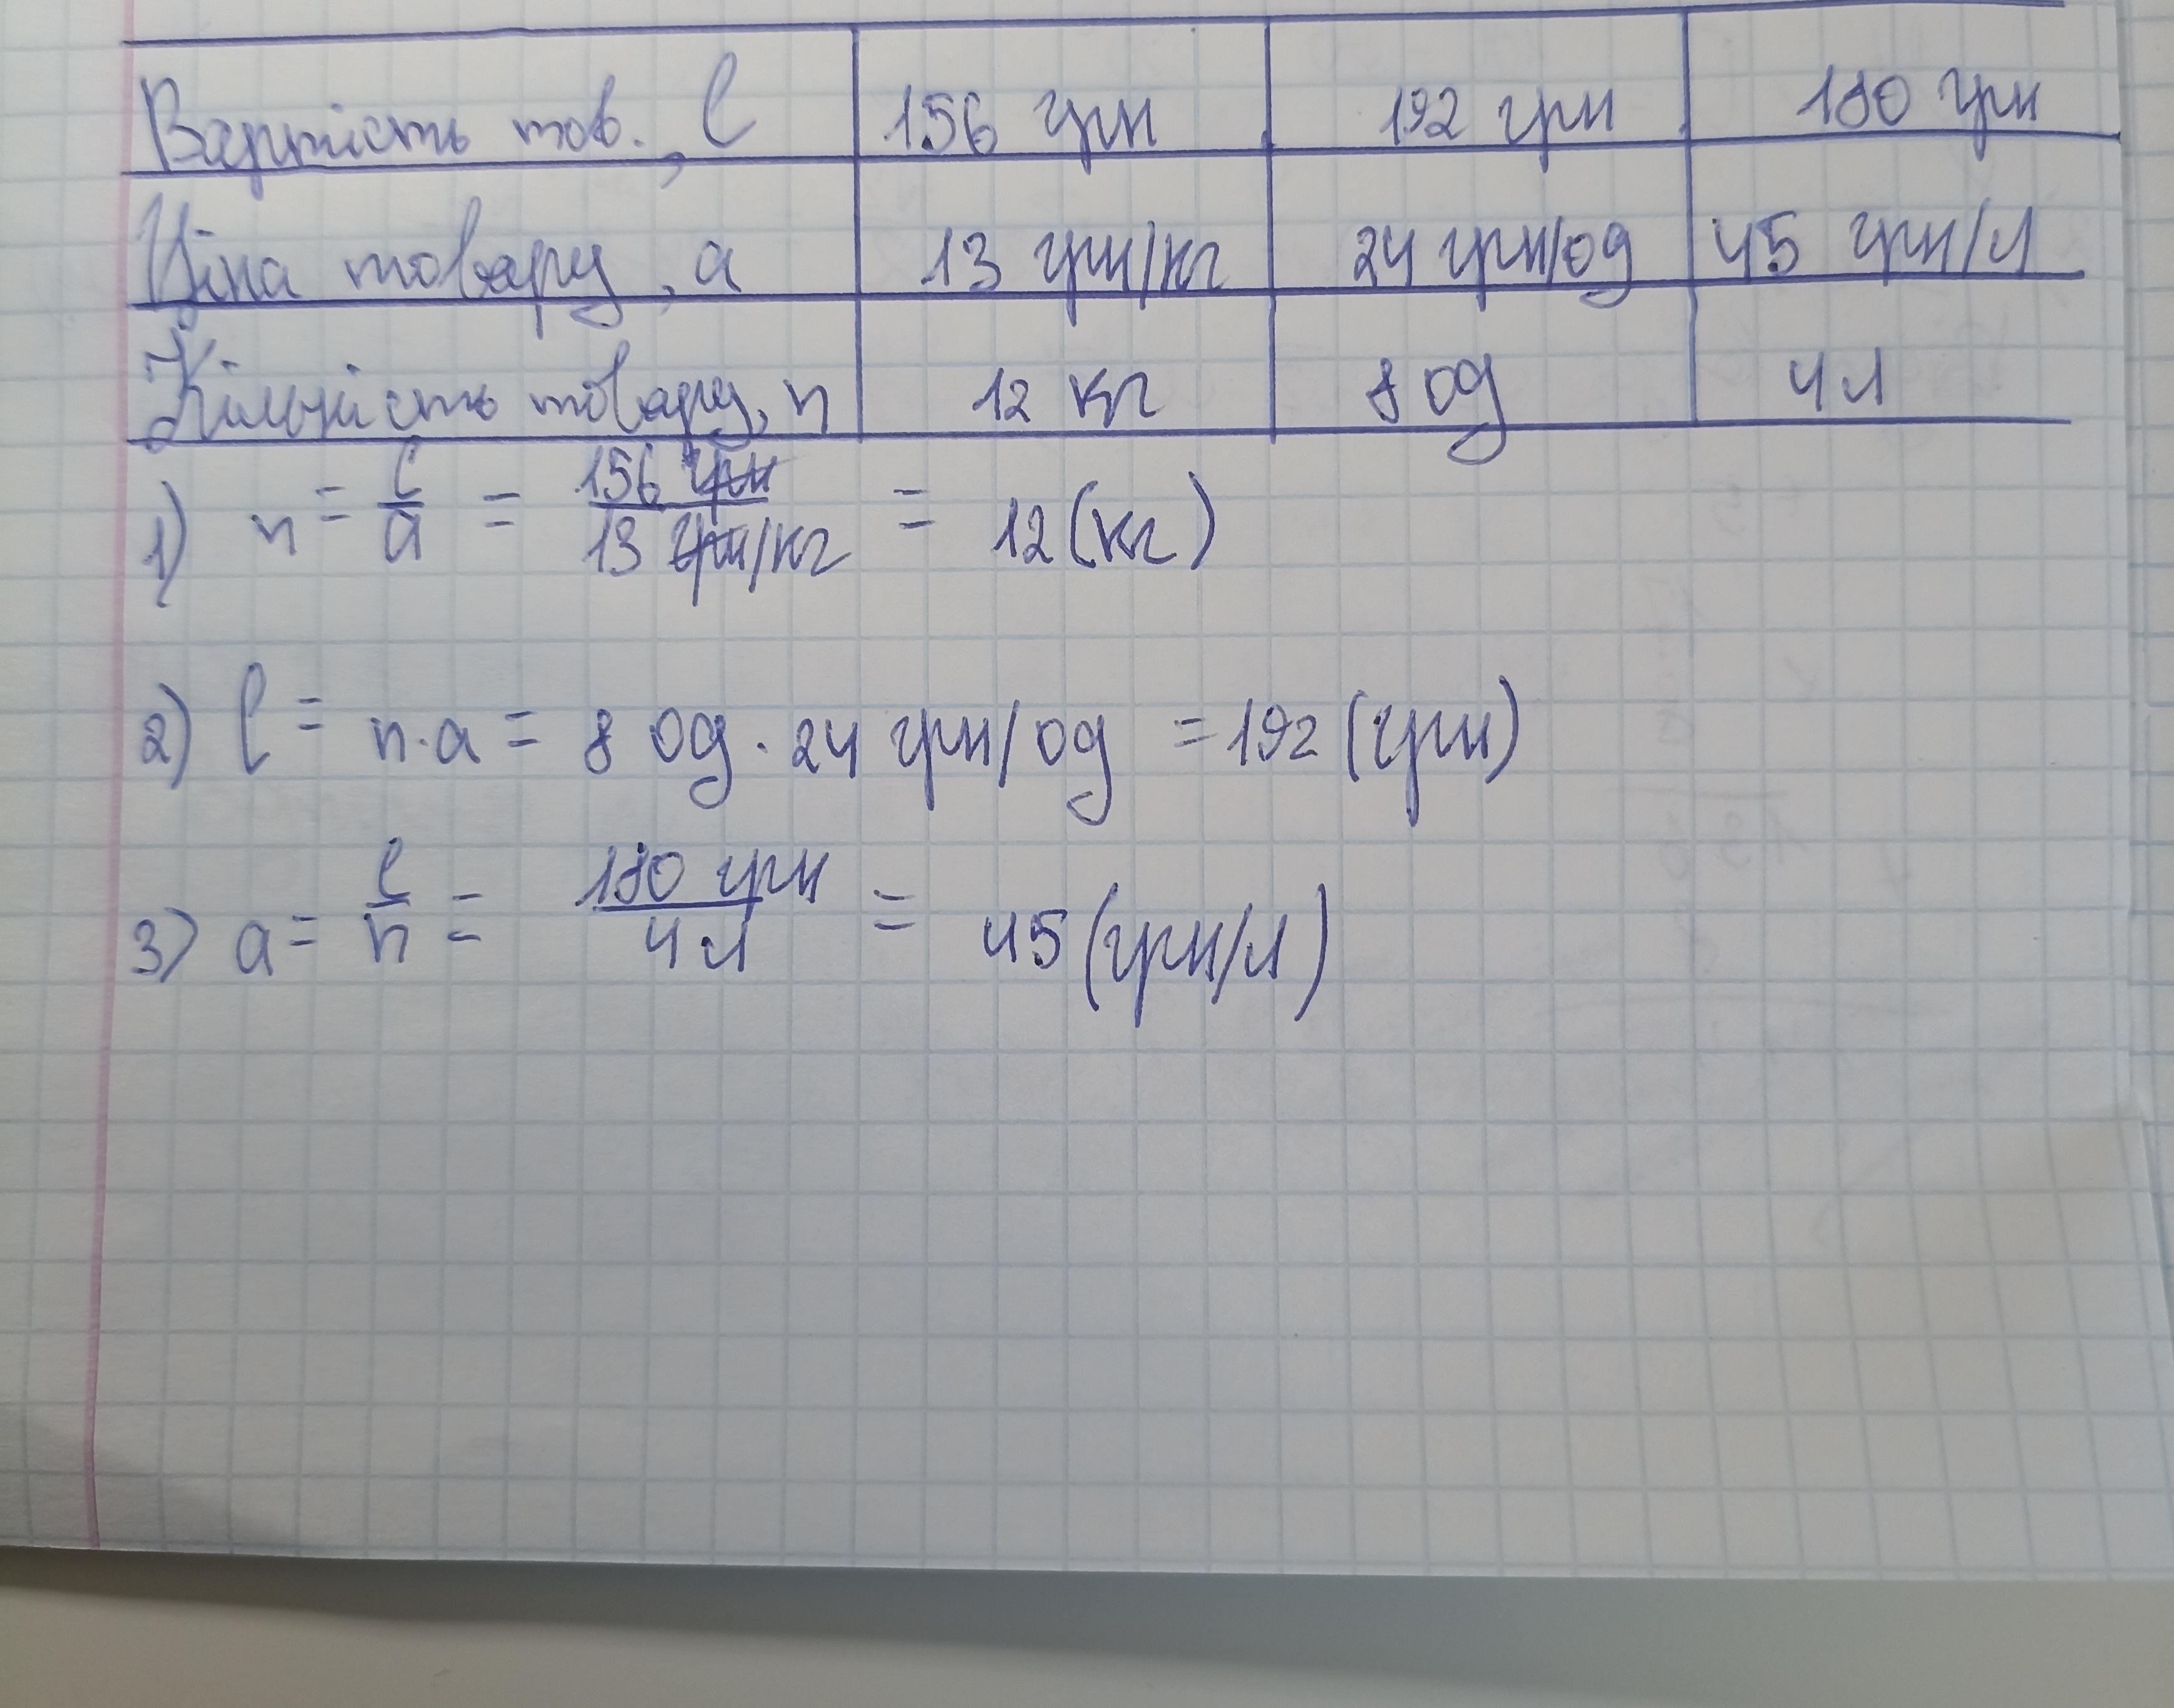 Вартість тов., C 156 грн 192 грн 180 грн
Ціна товару, a 13 грн/кг 24 грн/од 45 грн/л
Кількість товару, n 12 кг 8 од 4 л
1) n = C/a = 156 грн / 13 грн/кг = 12 (кг)
2) C = n · a = 8 од · 24 грн/од = 192 (грн)
3) a = C/n = 180 грн / 4 л = 45 (грн/л)